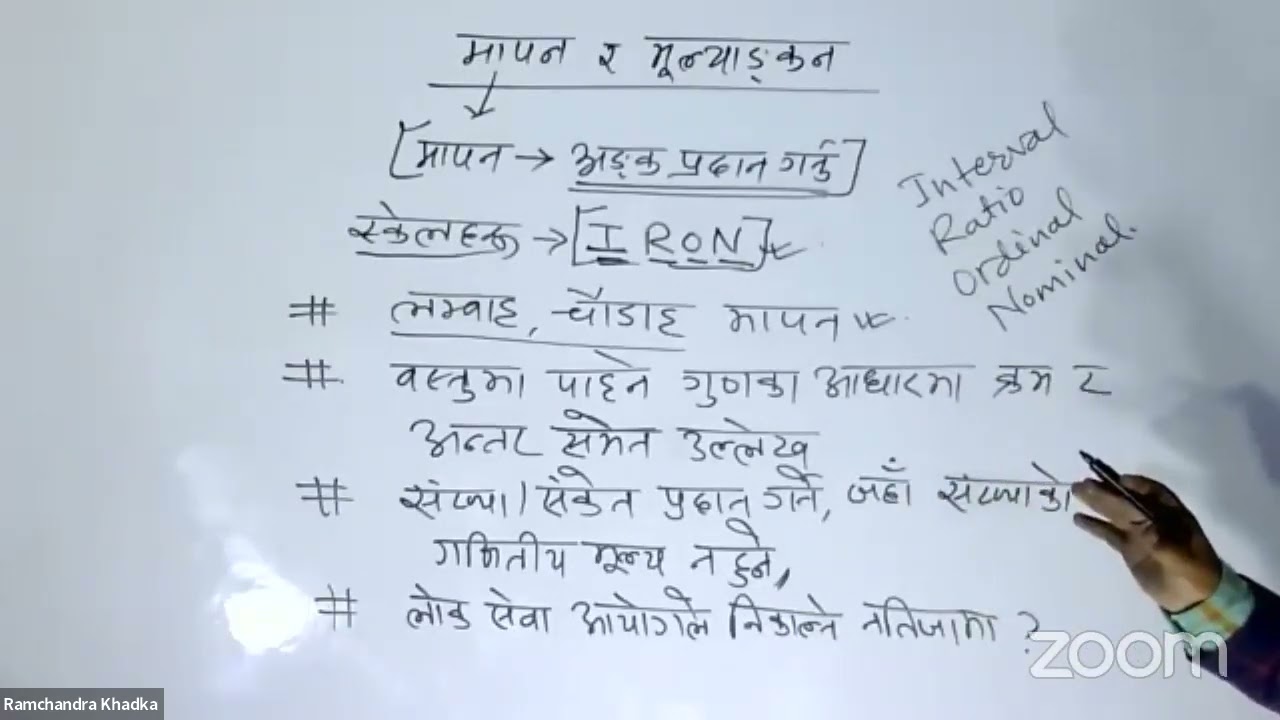 मापन र मूल्याङ्कन
[मापन → अङ्क प्रदान गर्नु]
स्केलहरू → [I R O N]
Interval
Ratio
Ordinal
Nominal.
# लम्बाइ, चौडाइ मापन
# वस्तुमा पाइने गुणका आधारमा क्रम र
अन्तर समेत उल्लेख
# संख्या/संकेत प्रदान गर्ने, जहाँ संख्याको
गणितीय मूल्य नहुने,
# लोक सेवा आयोगले निकाल्ने नतिजामा ?
zoom
Ramchandra Khadka